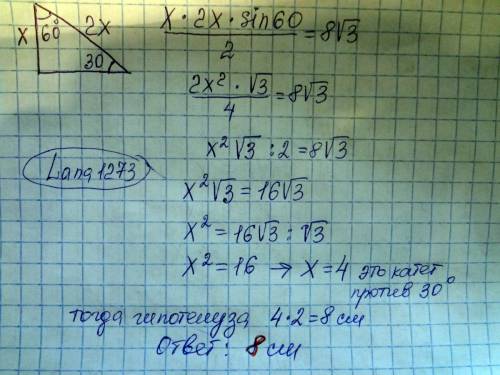 x 60° 2x
30
x · 2x · sin60 / 2 = 8√3
2x² · √3 / 4 = 8√3
x²√3 : 2 = 8√3
Lana1273
x²√3 = 16√3
x² = 16√3 : √3
x² = 16 → x = 4 это катет
против 30°
тогда гипотенуза 4·2=8 см
Ответ: 8 см